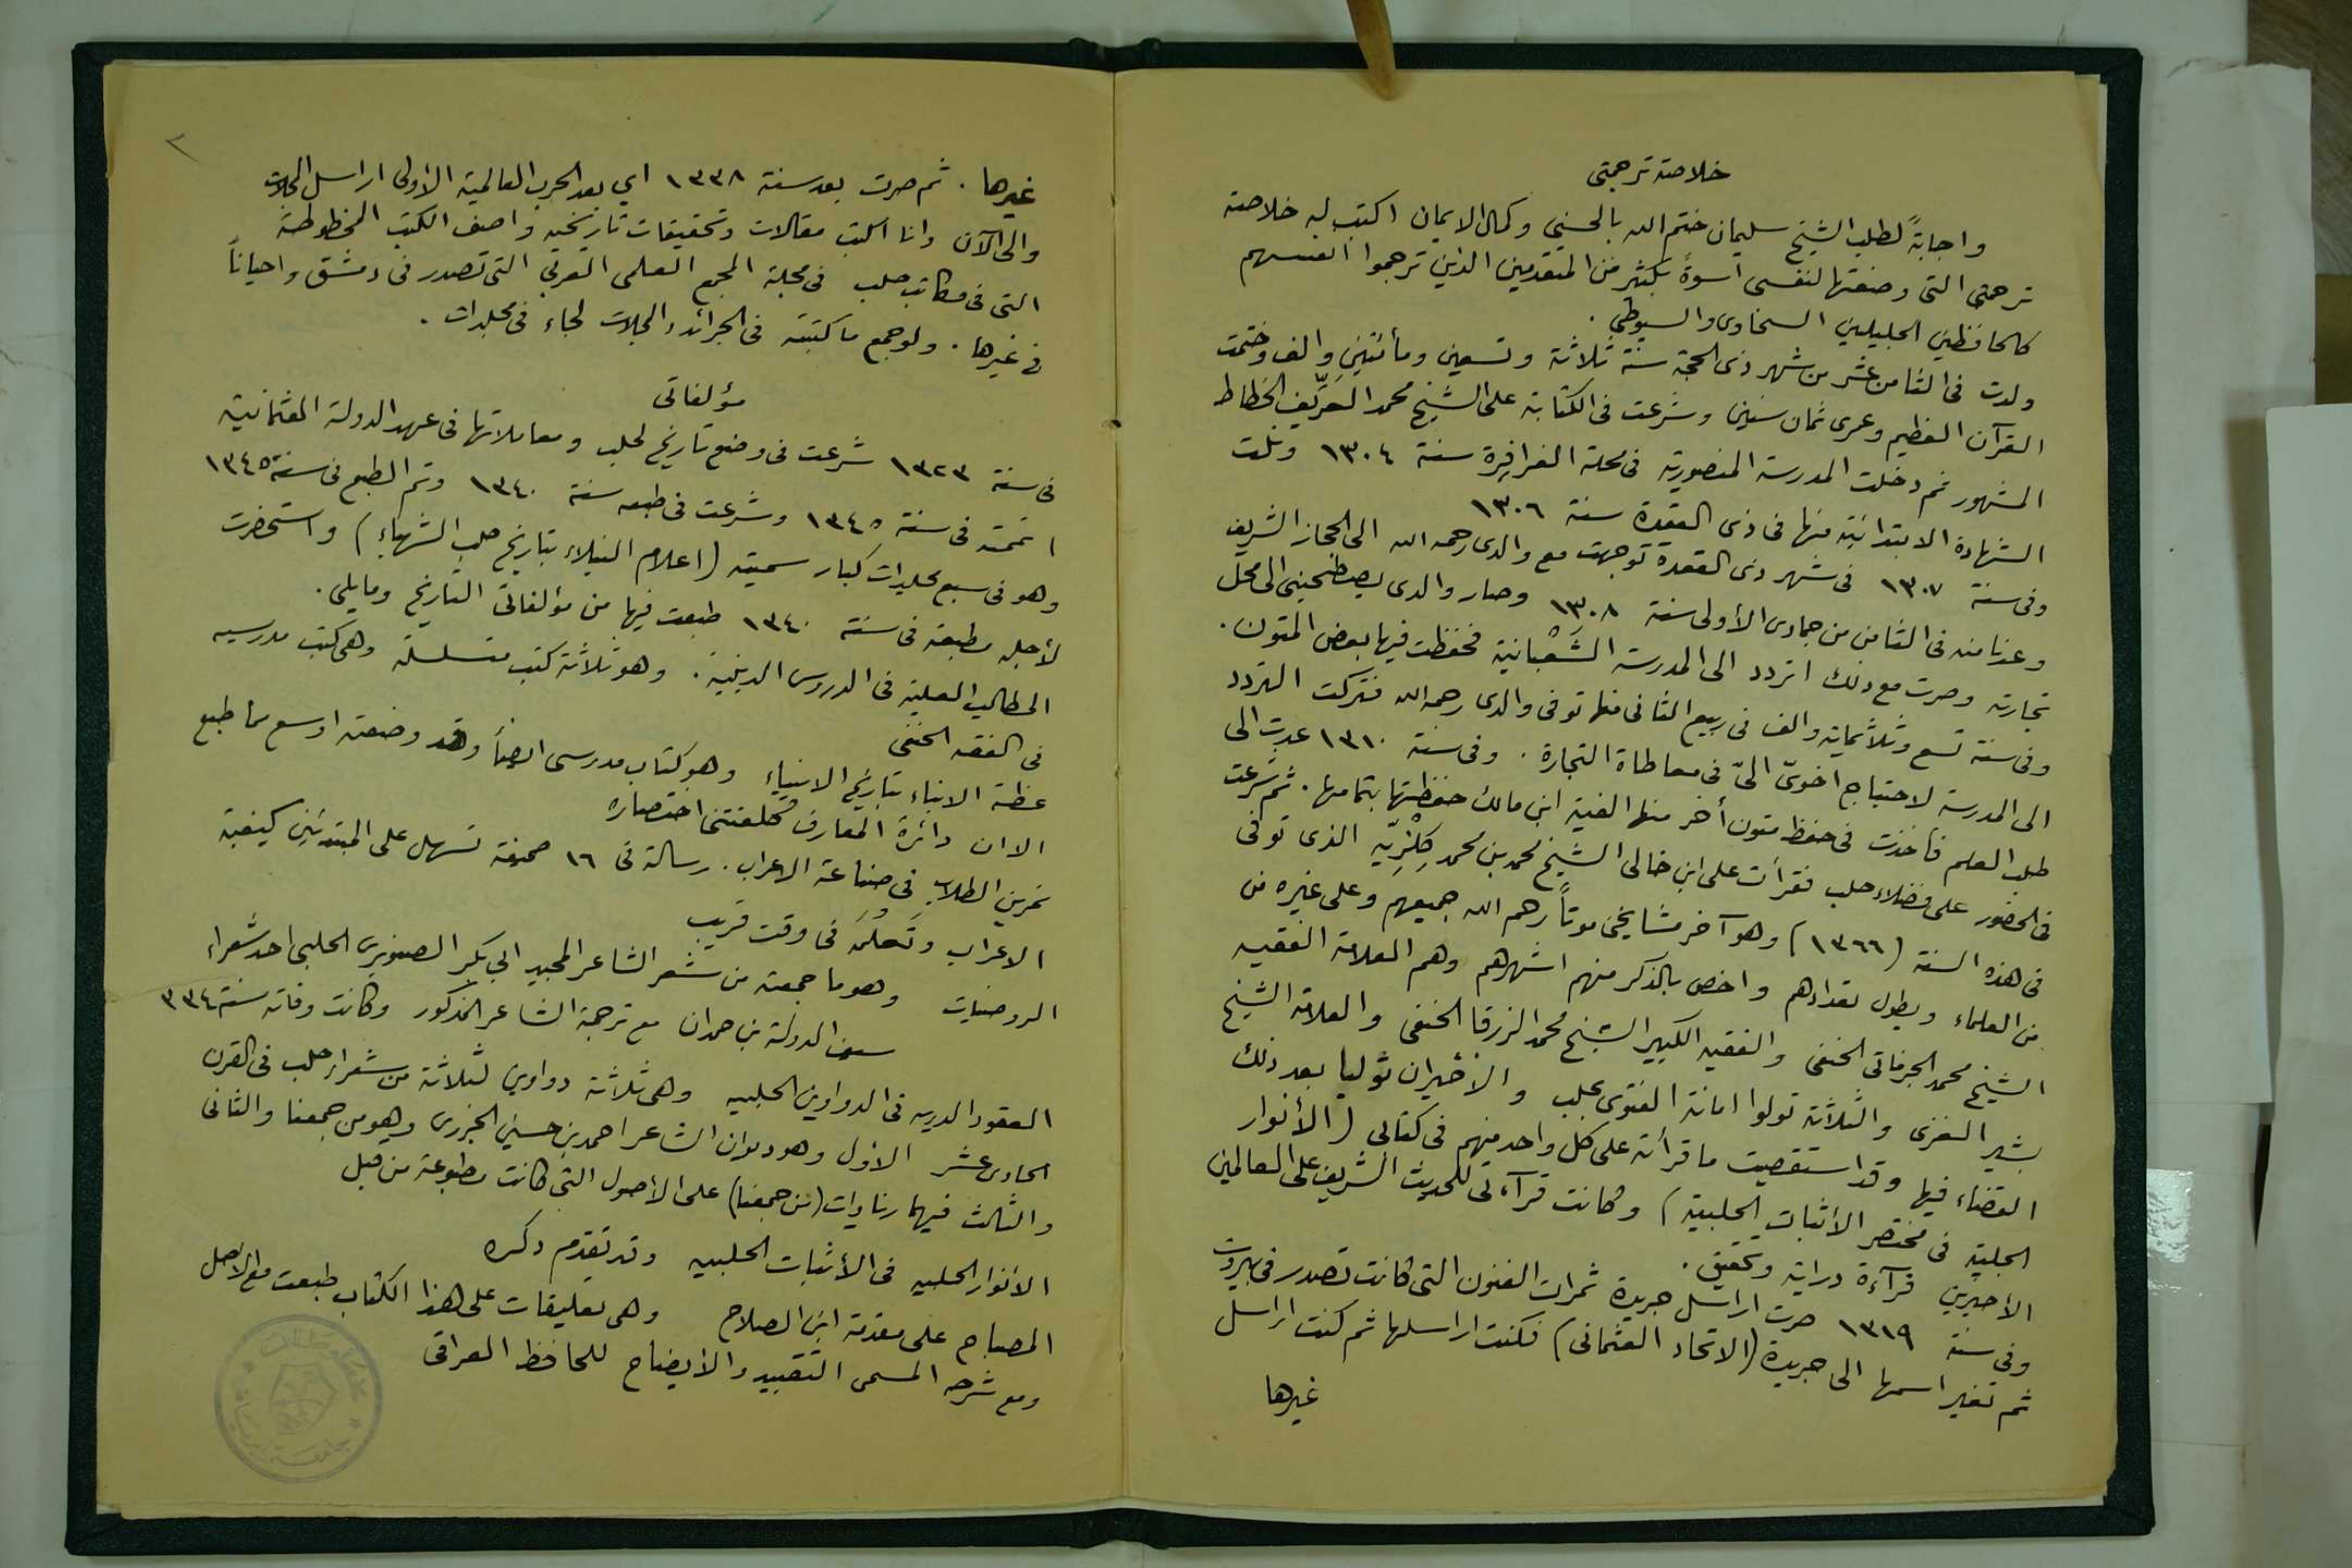 خلاصة ترجمتي
واجابةً لطلب الشيخ سليمان ختم الله بالحسنى وكمال الايمان اكتب له خلاصة
ترجمتي التي وضعتها لنفسي أسوةً بكثير من المتقدمين الذين ترجموا انفسهم
كالحافظين الجليلين السخاوي والسيوطي .
ولدت في الثامن عشر من شهر ذي الحجة سنة ثلاثة وتسعين ومأتين والف وختمت
القرآن العظيم وعمري ثمان سنين وشرعت في الكتابة على الشيخ محمد العَرِّيف الخطاط
المشهور ثم دخلت المدرسة المنصورية في محلة الفرافرة سنة ١٣٠٤ ونلت
الشهادة الابتدائية منها في ذي القعدة سنة ١٣٠٦
وفي سنة ١٣٠٧ في شهر ذي القعدة توجهت مع والدي رحمه الله الى الحجاز الشريف
وعدنا منه في الثامن من جمادى الأولى سنة ١٣٠٨ وصار والدي يصطحبني الى محل
تجارته وصرت مع ذلك اتردد الى المدرسة الشَعْبانية فحفظت فيها بعض المتون .
وفي سنة تسع وثلاثماية والف في ربيع الثاني منها توفي والدي رحمه الله فتركت التردد
الى المدرسة لاحتياج اخويّ اليّ في معاطاة التجارة . وفي سنة ١٣١٠ عدت الى
طلب العلم فأخذت في حفظ متون أخر منها الفية ابن مالك حفظتها بتمامها . ثم شرعت
في الحضور على فضلاء حلب فقرأت على ابن خالي الشيخ محمد بن محمد كِلْزِيّه الذي توفي
في هذه السنة (١٣٦٦) وهو آخر مشايخي موتاً رحم الله جميعهم وعلى غيره من
من العلماء ويطول تعدادهم واخص بالذكر منهم اشهرهم وهم العلامة الفقيه
الشيخ محمد الجزماتي الحنفي والفقيه الكبير الشيخ محمد الزرقا الحنفي والعلامة الشيخ
بشير الغزي والثلاثة تولوا امانة الفتوى بحلب والأخيران توليا بعد ذلك
القضاء فيها وقد استقصيت ما قرأته على كل واحد منهم في كتابي (الأنوار
الجلية في مختصر الأثبات الحلبية) وكانت قرآءتي للحديث الشريف على العالمين
الأخيرين قرآءة دراية وتحقيق .
وفي سنة ١٣١٩ صرت اراسل جريدة ثمرات الفنون التي كانت تصدر في بيروت
ثم تغير اسمها الى جريدة (الاتحاد العثماني) فكنت اراسلها ثم كنت اراسل
غيرها
٢
غيرها . ثم صرت بعد سنة ١٣٣٨ اي بعد الحرب العالمية الأولى اراسل المجلات
والى الآن وانا اكتب مقالات وتحقيقات تاريخيه واصف الكتب المخطوطة
التي في مكاتب حلب في مجلة المجمع العلمي العربي التي تصدر في دمشق واحياناً
في غيرها . ولو جمع ما كتبته في الجرائد والمجلات لجاء في مجلدات .
مؤلفاتي
في سنة ١٣٢٣ شرعت في وضع تاريخ لحلب ومعاملاتها في عهد الدولة العثمانية
اتممته في سنة ١٣٤٥ وشرعت في طبعه سنة ١٣٤٠ وتم الطبع في سنة ١٣٤٥
وهو في سبع مجلدات كبار سميته (اعلام النبلاء بتاريخ حلب الشهباء) واستحضرت
لأجله مطبعة في سنة ١٣٤٠ طبعت فيها من مؤلفاتي التاريخ وما يلي .
المطالب العلية في الدروس الدينية . وهو ثلاثة كتب متسلسلة وهي كتب مدرسيه
في الفقه الحنفي
عظة الابناء بتاريخ الانبياء وهو كتاب مدرسي ايضاً وقد وضعته اوسع مما طبع
الا ان دائرة المعارف كلفتني اختصاره
تمرين الطلاب في صناعة الاعراب . رسالة في ١٦ صحيفة تسهل على المبتدئين كيفية
الاعراب وتَعلُّمَه في وقت قريب
الروضيات وهو ما جمعته من شعر الشاعر المجيد ابي بكر الصنوبري الحلبي احد شعراء
سيف الدولة بن حمدان مع ترجمة الشاعر المذكور وكانت وفاته سنة ٣٣٤
العقود الدريه في الدواوين الحلبيه وهي ثلاثة دواوين لثلاثة من شعراء حلب في القرن
الحادي عشر الأول وهو ديوان الشاعر احمد بن حسين الجزري وهو من جمعنا والثاني
والثالث فيهما زيادات (من جمعنا) على الأصول التي كانت مطبوعة من قبل
الأنوار الجليه في الأثبات الحلبيه وقد تقدم ذكره
المصباح على مقدمة ابن الصلاح وهي تعليقات على هذا الكتاب طبعت مع الأصل
ومع شرحه المسمى التقييد والأيضاح للحافظ العراقي